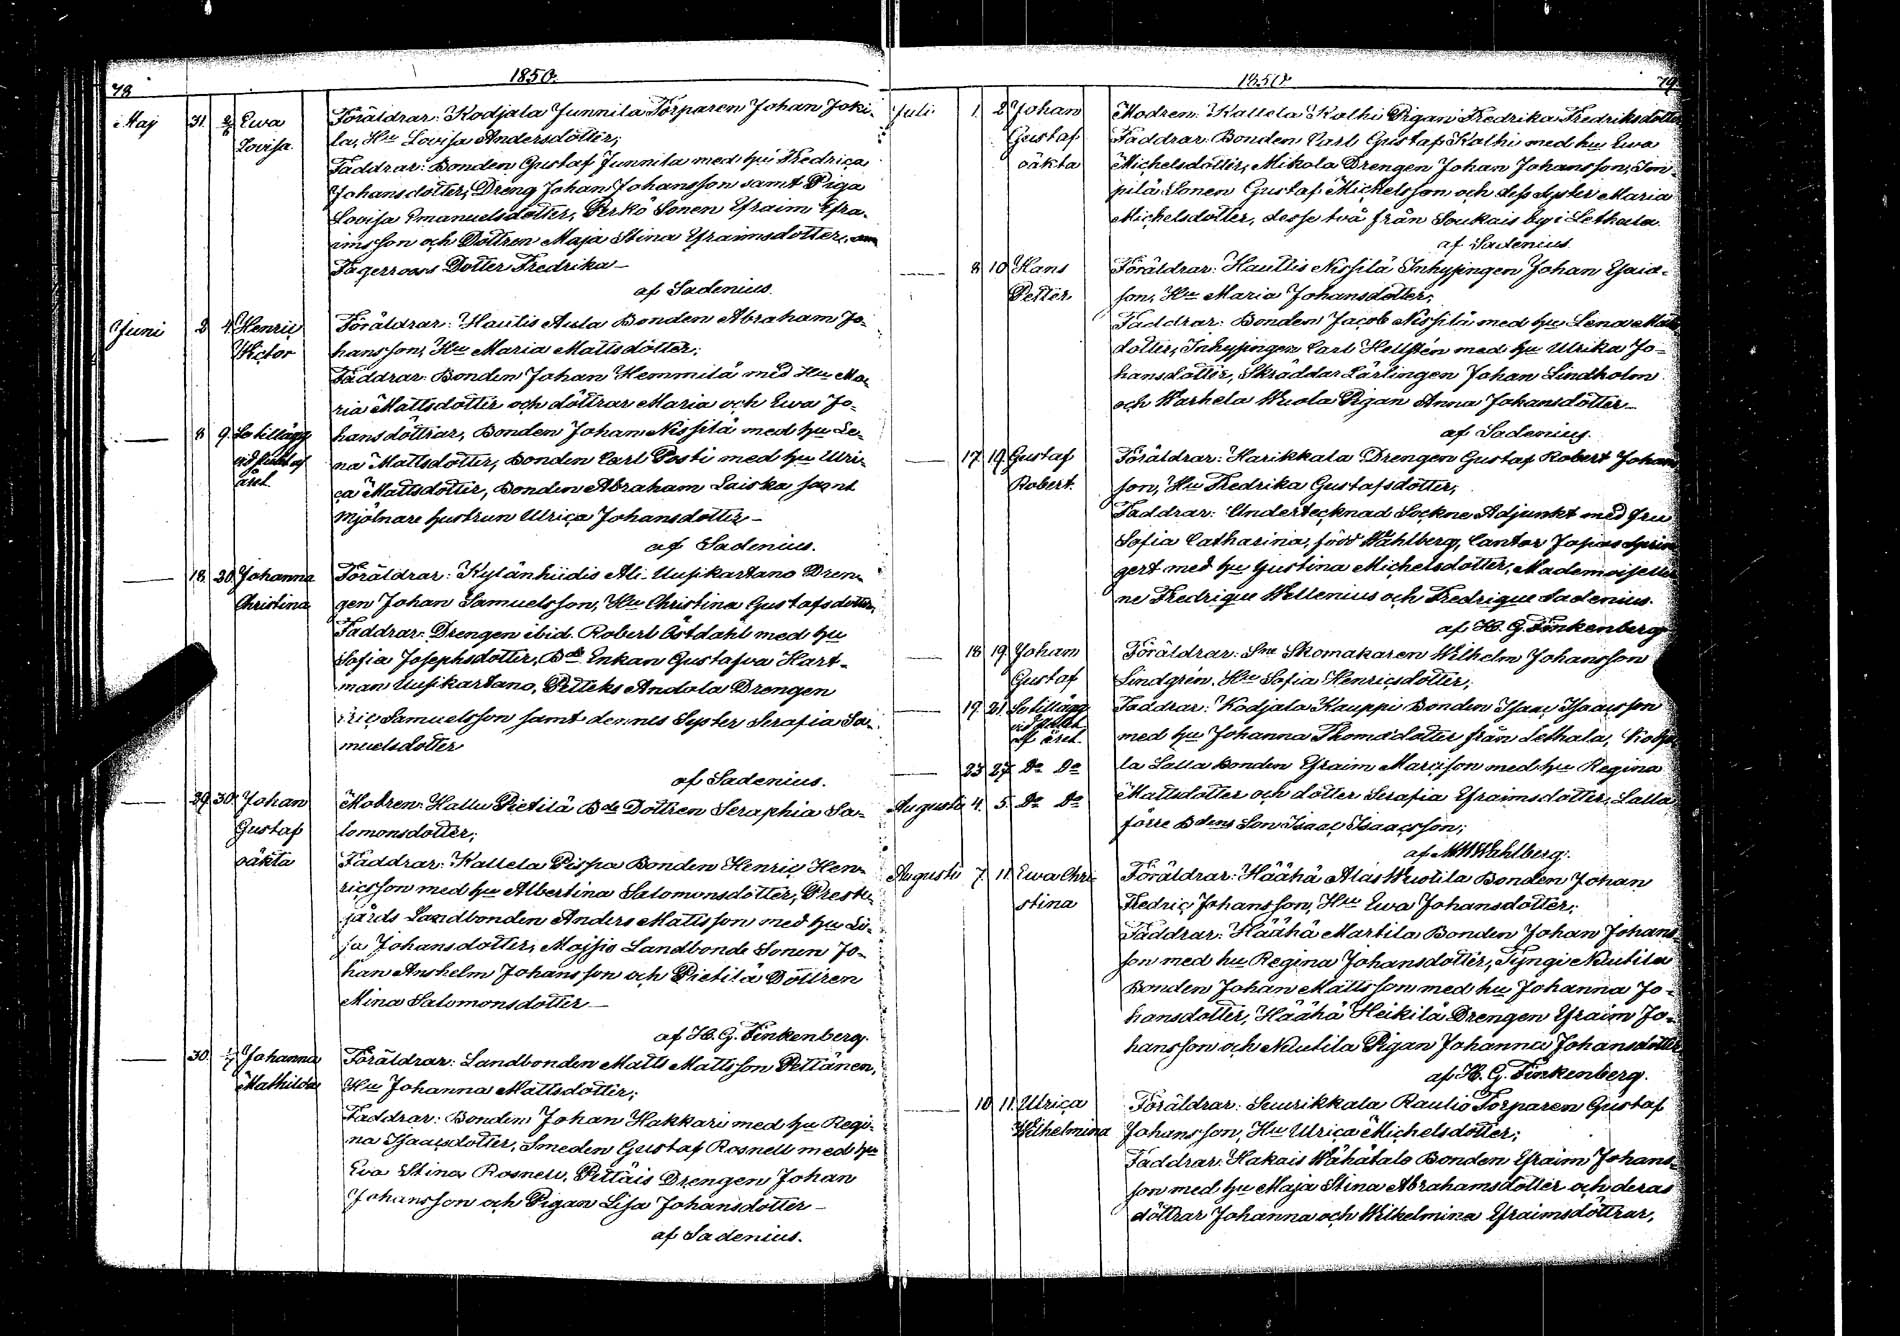 78
1850.
Maj 31. 2/6 Ewa Föräldrar: Kodjala Junnila Torparen Johan Joki-
Lovisa la, Hu Lovisa Andersdotter;
Faddrar: Bonden Gustaf Junnila med hu Fredrica
Johansdotter, Dreng Johan Johansson samt Piga
Lovisa Emanuelsdotter, Perkö Sonen Efraim Efra-
imsson och Dottren Maja Stina Efraimsdotter,
Fagerroos Dotter Fredrika
af Sadenius.
Juni 2 4. Henric Föräldrar: Hautis Aula Bonden Abraham Jo-
Wictor hansson, Hu Maria Mattsdotter;
Faddrar: Bonden Johan Hemmilä med Hu Ma-
ria Mattsdotter och döttrar Maria och Ewa Jo-
8 9. Se tillägg hansdöttrar, Bonden Johan Nissilä med hu Le-
vid slutet af na Mattsdotter, Bonden Carl Posti med hu Ulri-
året. ca Mattsdotter, Bonden Abraham Laiska samt
Mjölnare hustrun Ulrica Johansdotter
af Sadenius.
18. 20. Johanna Föräldrar: Kylänhiidis Ali-Uusikartano Dren-
Christina gen Johan Samuelsson, Hu Christina Gustafsdotter,
Faddrar: Drengen ibid. Robert Östdahl med hu
Sofia Josephsdotter, Bde Enkan Gustafva Hart-
man Uusikartano, Pelteks Andola Drengen
ric Samuelsson samt dennes Syster Serafia Sa-
muelsdotter
af Sadenius.
29. 30. Johan Modren: Hallu Pietilä Bde Dottren Seraphia Sa-
Gustaf lomonsdotter;
oäkta Faddrar: Kallela Pispa Bonden Henric Hen-
ricsson med hu Albertina Salomonsdotter, Preste-
gårds Landbonden Anders Mattsson med hu Li-
sa Johansdotter, Majsis Landbonde Sonen Jo-
han Anshelm Johansson och Pietilä Dottren
Mina Salomonsdotter
af H. G. Finkenberg.
30. 1/7 Johanna Föräldrar: Landbonden Matts Mattsson Pettänen,
Mathilda Hu Johanna Mattsdotter;
Faddrar: Bonden Johan Hakkari med hu Regi-
na Isaacsdotter, Smeden Gustaf Rosnell med hu
Eva Stina Rosnell, Pettäis Drengen Johan
Johansson och Pigan Lisa Johansdotter
af Sadenius.
1850
79.
Juli 1. 2 Johan Modren: Kallela Kolhi Pigan Fredrika Fredriksdotter
Gustaf Faddrar: Bonden Carl Gustaf Kolhi med hu Ewa
oäkta Michelsdotter, Mikola Drengen Johan Johansson, Im-
pilä Sonen Gustaf Michelsson och dess syster Maria
Michelsdotter, desse två från Soukais by i Lethala.
af Sadenius.
8 10 Hans Föräldrar: Hautis Nissilä Inhysingen Johan Esaia-
Petter son, Hu Maria Johansdotter;
Faddrar: Bonden Jacob Nissilä med hu Lena Matts
dotter, Inhysingen Carl Hellstén med hu Ulrika Jo-
hansdotter, Skräddar Lärlingen Johan Lindholm
och Warhela Wuola Pigan Anna Johansdotter
af Sadenius.
17. 19. Gustaf Föräldrar: Harikkala Drengen Gustaf Robert Johans
Robert. son, Hu Fredrika Gustafsdotter;
Faddrar: Undertecknad Sockne Adjunkt med fru
Sofia Catharina, född Wahlberg, Cantor Josias Sprin
gert med hu Gustina Michelsdotter, Mademoiseller
ne Fredrique Wellenius och Fredrique Sadenius.
af H. G. Finkenberg
18. 19. Johan Föräldrar: Skomakaren Wilhelm Johansson
Gustaf Lindgrén. Hu Sofia Henricsdotter;
19. 21. Se tillägg Faddrar: Kodjala Kauppi Bonden Isaac Isaacsson
vid slutet med hu Johanna Thomasdotter från Lethala, Kodja
af året.
23 27. Do Do la Lalla Bonden Efraim Marcisson med hu Regina
Augusti 4. 5. Do Do Mattsdotter och dotter Serafia Efraimsdotter, Lalla
förre Bdens Son Isaac Isaacsson;
af Wahlberg.
Augusti 7. 11. Ewa Chri- Föräldrar: Häähä Alas Wuotila Bonden Johan
stina Fredric Johansson, Hu Ewa Johansdotter;
Faddrar: Häähä Martila Bonden Johan Johans-
son med hu Regina Johansdotter, Tyngi Nautila
Bonden Johan Mattsson med hu Johanna Jo-
hansdotter, Häähä Heikilä Drengen Efraim Jo-
hansson och Nautila Pigan Johanna Johansdotter
af H. G. Finkenberg.
10 11. Ulrica Föräldrar: Suurikkala Rautio Torparen Gustaf
Wilhelmina Johansson, Hu Ulrica Michelsdotter;
Faddrar: Hakais Wähätalo Bonden Efraim Johans-
son med hu Maja Stina Abrahamsdotter och deras
döttrar Johanna och Wilhelmina Efraimsdöttrar,